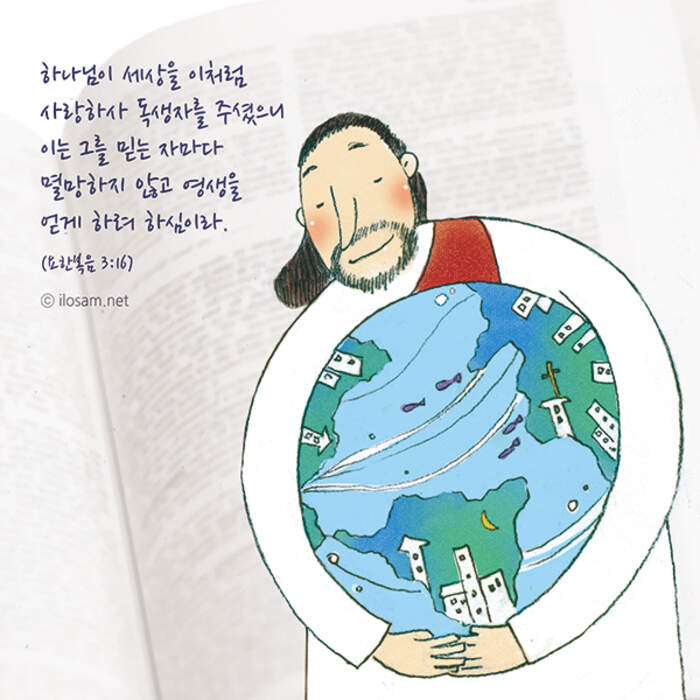 하나님이 세상을 이처럼
사랑하사 독생자를 주셨으니
이는 그를 믿는 자마다
멸망하지 않고 영생을
얻게 하려 하심이라.
(요한복음 3:16)
© ilosam.net